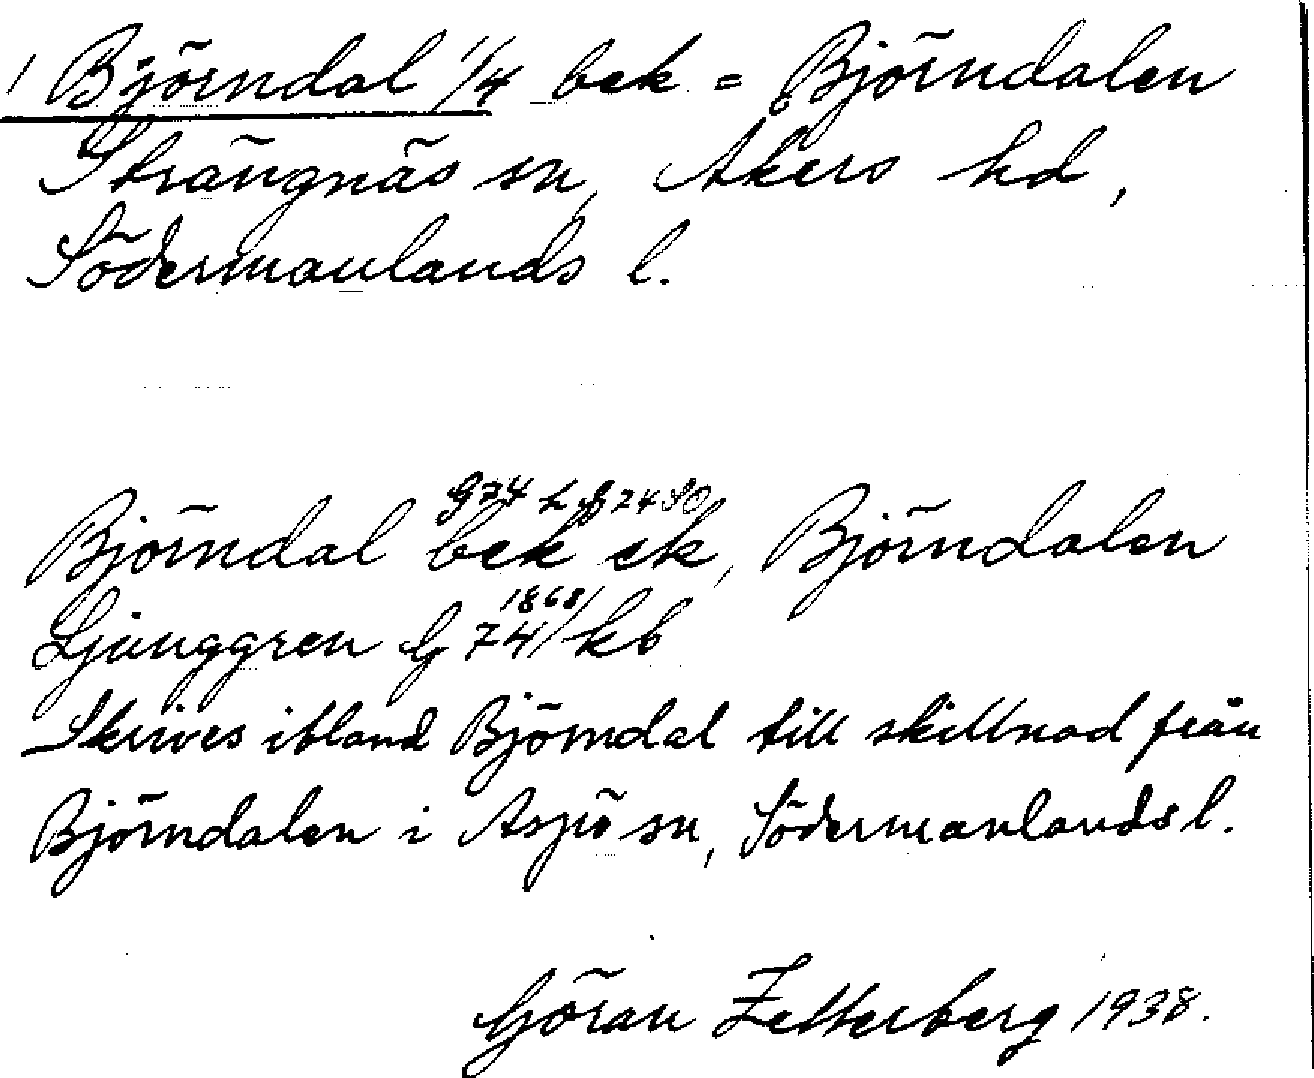 1 Björndal 1/4 bek = Björndalen
Strängnäs sn, Åkers hd,
Södermanlands l.
G74
Björndal bek ek, Björndalen
1868
Ljunggren G 74/ kb
Skrives ibland Björndal till skillnad från
Björndalen i Aspö sn, Södermanlands l.
Göran Zetterberg 1938.